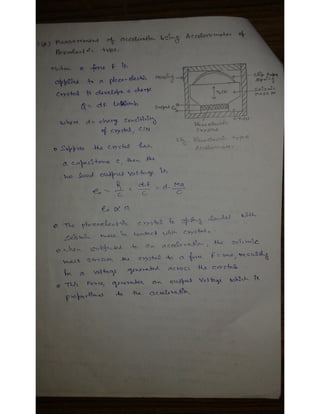 Measurement of acceleration being Accelerometer of
Piezoelectric type.
When a force F is
applied to a piezo-electric
crystal it develops a charge
Q = d.F coulomb
where d = charge sensitivity
of crystal, C/N
Suppose the crystal has
a capacitance C, then the
no load output voltage is
e₀ = Q/C = d.F/C = d. ma/C
e₀ ∝ a
The piezoelectric crystal is spring loaded with
seismic mass in contact with crystal.
when subjected to an acceleration, the seismic
mass stresses the crystal to a force F = ma, resulting
in a voltage generated across the crystal
This force generates an output voltage which is
proportional to the acceleration
Housing
spring
seismic
mass M
Piezoelectric
crystal
Fig. Piezoelectric type
Accelerometer